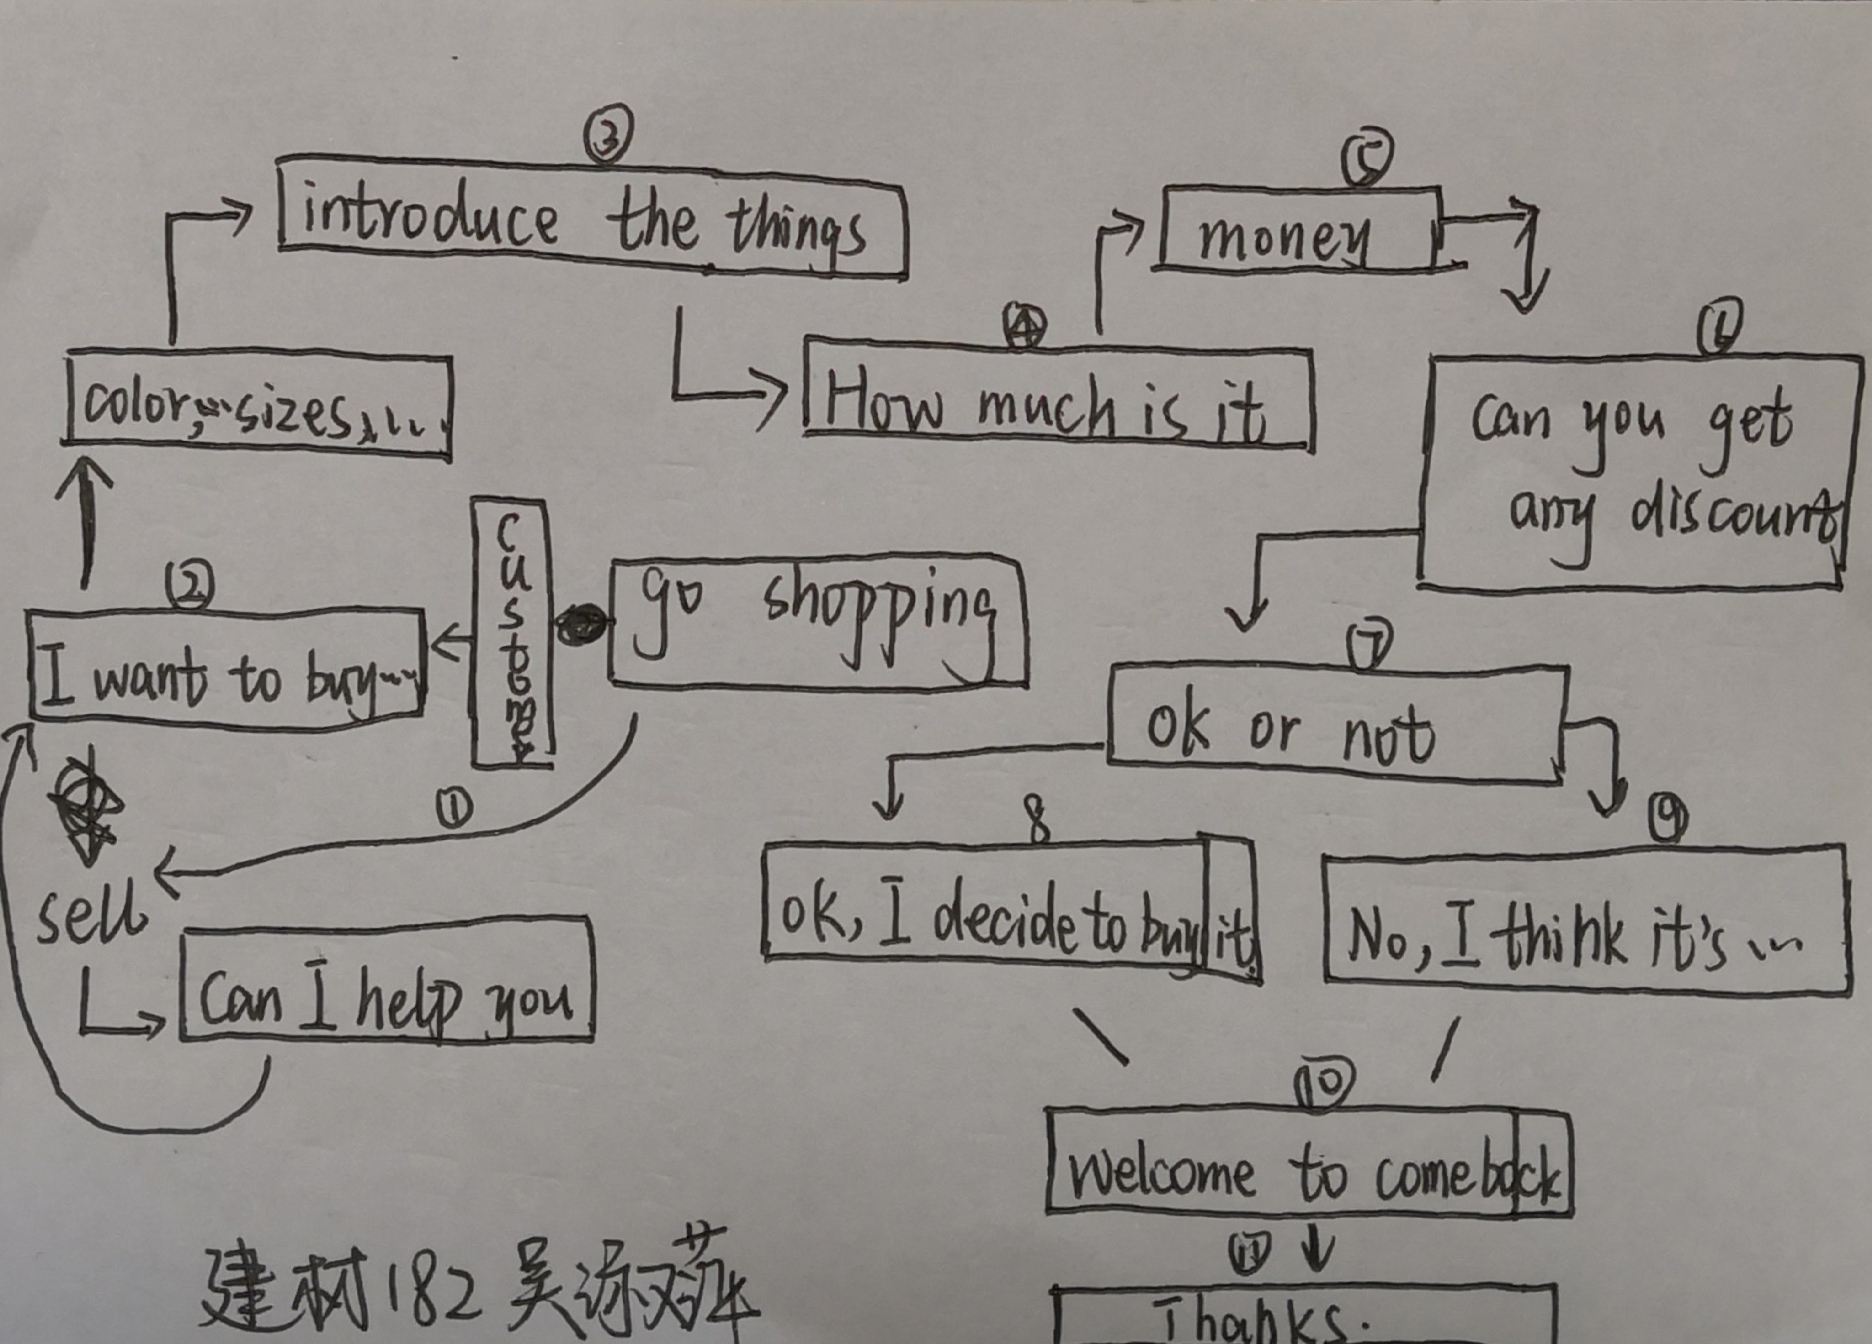 ③
introduce the things
⑤
money
④
How much is it
⑥
can you get
any discount
color, sizes, ....
②
I want to buy...
customer
go shopping
⑦
ok or not
①
sell
Can I help you
8
ok, I decide to buy it
⑨
No, I think it's ...
⑩
Welcome to come back
⑪
Thanks.
建材182 吴